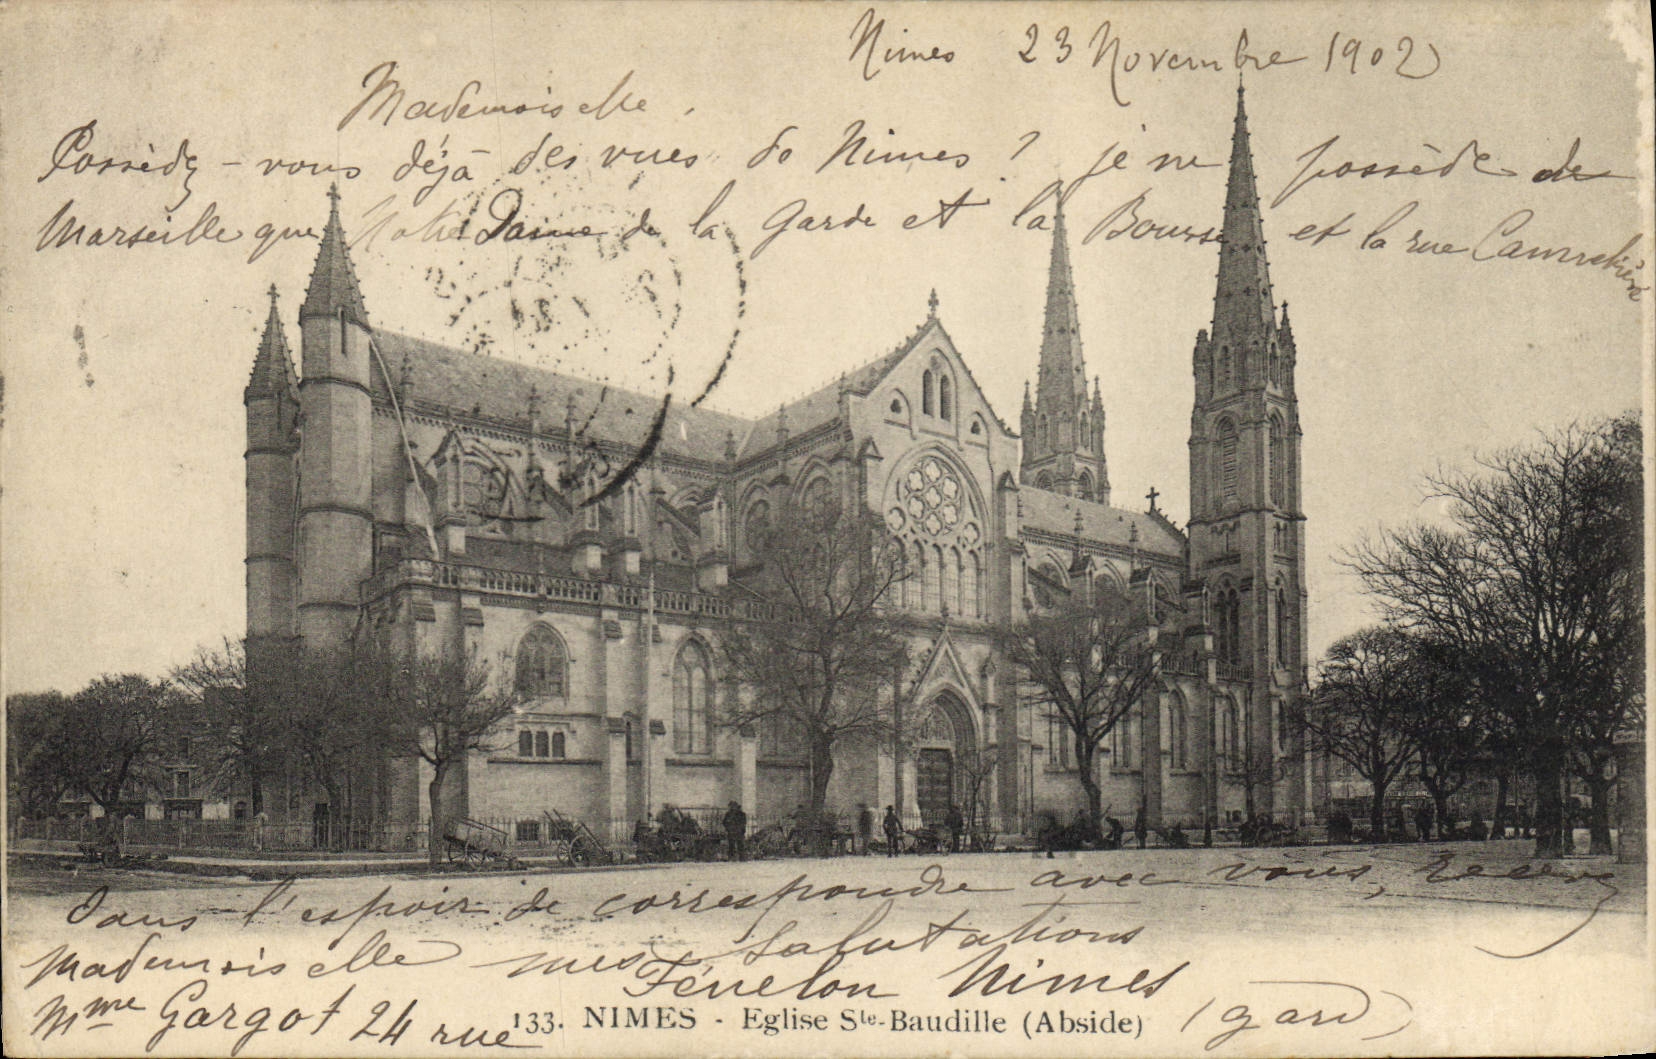 Nimes 23 Novembre 1902
Mademoiselle.
Possèdez-vous déjà des vues de Nimes? je ne possède de
Marseille que Notre Dame de la Garde et la Bourse et la rue Cannebière
Dans l'espoir de correspondre avec vous, Recevez
Mademoiselle mes Salutations
Mme Gargot 24 rue Fénelon Nimes (gard)
133. NIMES - Eglise Ste-Baudille (Abside)